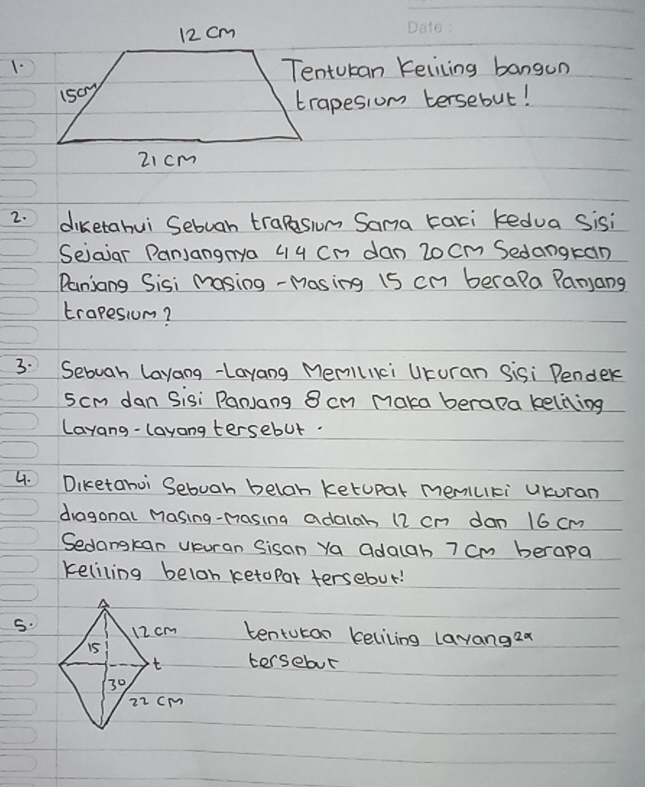 Date :
12 cm
1. 15cm Tentukan Keliling bangun
trapesium tersebut!
21 cm
2. diketahui Sebuah traPasium Sama kaki kedua Sisi
Sejajar Panjangnya 44 cm dan 20 cm Sedangkan
Panjang Sisi Masing - Masing 15 cm beraPa Panjang
trapesium?
3. Sebuah Layang - Layang Memiliki Ukuran Sisi Pendek
5cm dan Sisi Panjang 8 cm Maka berapa keliling
Layang - Layang tersebut.
4. Diketahui Sebuah belah ketupat memiliki Ukuran
diagonal Masing-Masing adalah 12 cm dan 16 cm
Sedangkan ukuran Sisan ya adalah 7 cm berapa
Keliling belah ketupat tersebut!
5. A
12 cm tentukan keliling Layang2n
15 t tersebut
30
22 cm